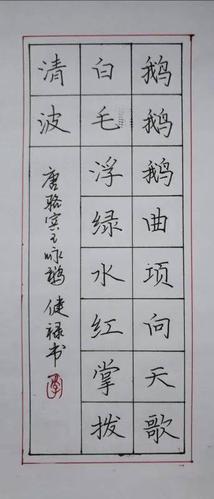 鹅鹅鹅曲项向天歌
白毛浮绿水红掌拨
清波
唐骆宾王咏鹅 健禄书